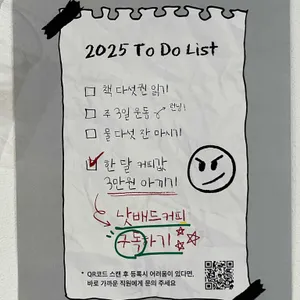 2025 To Do List
책 다섯권 읽기
주 3일 운동 런닝!
물 다섯 잔 마시기
한 달 커피값
3만원 아끼기
낫배드커피
구독하기
* QR코드 스캔 후 등록시 어려움이 있다면,
바로 가까운 직원에게 문의 주세요